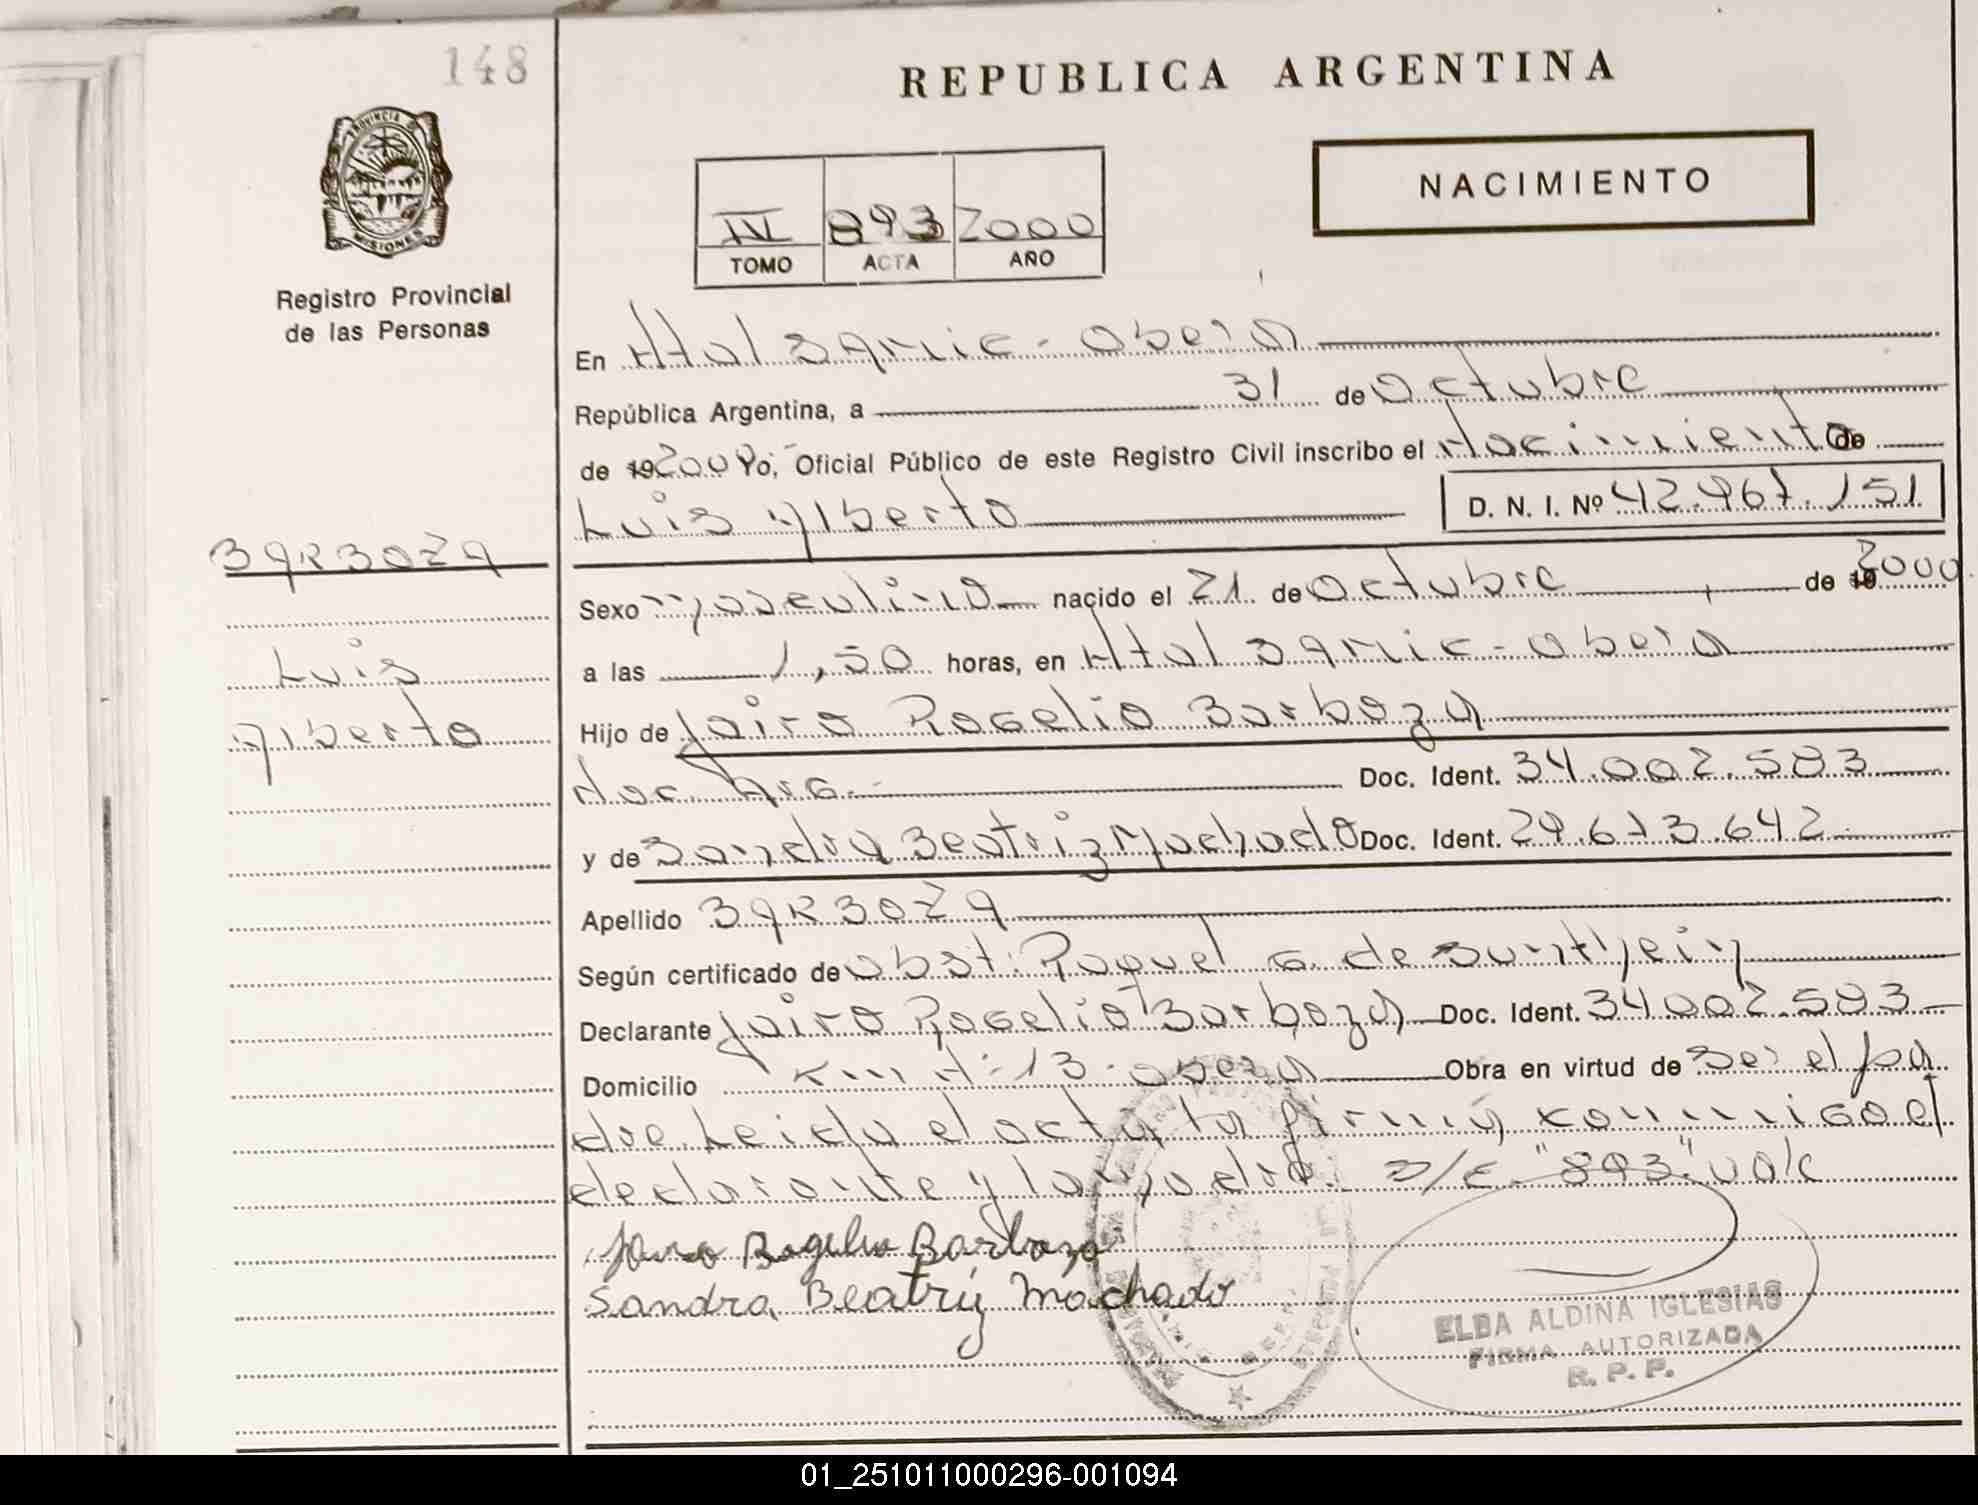 148
REPUBLICA ARGENTINA
PROVINCIA DE
MISIONES
Registro Provincial
de las Personas
IV 893 2000
TOMO ACTA AÑO
NACIMIENTO
En Htal Samic - Oberá
República Argentina, a 31 de Octubre
de 19 2000 Yo, Oficial Público de este Registro Civil inscribo el Nacimiento de
Luis Alberto D. N. I. Nº 42.967.151
BARBOZA
Luis
Alberto
Sexo Masculino nacido el 21 de Octubre de 19 2000
a las 1,50 horas, en Htal Samic - Oberá
Hijo de Jairo Rogelio Barboza
Nac Arg. Doc. Ident. 34.002.583
y de Sandra Beatriz Machado Doc. Ident. 29.673.642
Apellido BARBOZA
Según certificado de Obst. Raquel G. de
Declarante Jairo Rogelio Barboza Doc. Ident. 34.002.583
Domicilio Km 13 - Oberá Obra en virtud de Ser el pa
dre. Leida el acta, la firma conmigo el
declarante y la madre. S/C "893" vale
Jairo Rogelio Barboza
Sandra Beatriz Machado
ELBA ALDINA IGLESIAS
FIRMA AUTORIZADA
R. P. P.
01_251011000296-001094